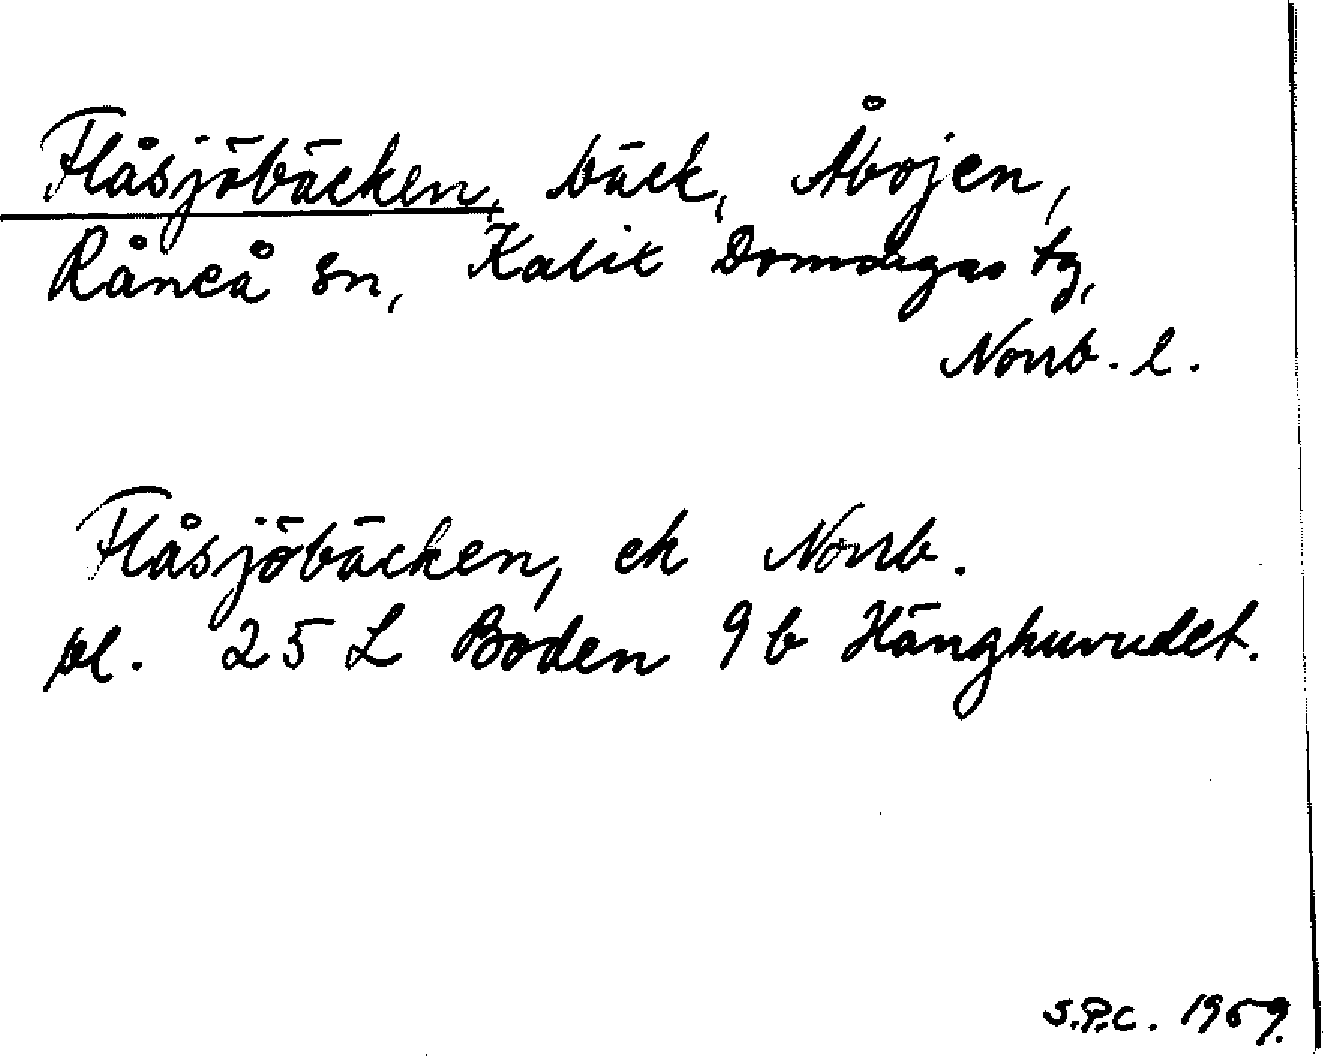 Flåsjöbäcken, bäck, Åbojen,
Råneå sn, Kalix Domsagas tg,
Norrb. l.
Flåsjöbäcken, ek Norrb.
bl. 25 L Boden 9 b Hänghuvudet.
S.P.C. 1969.